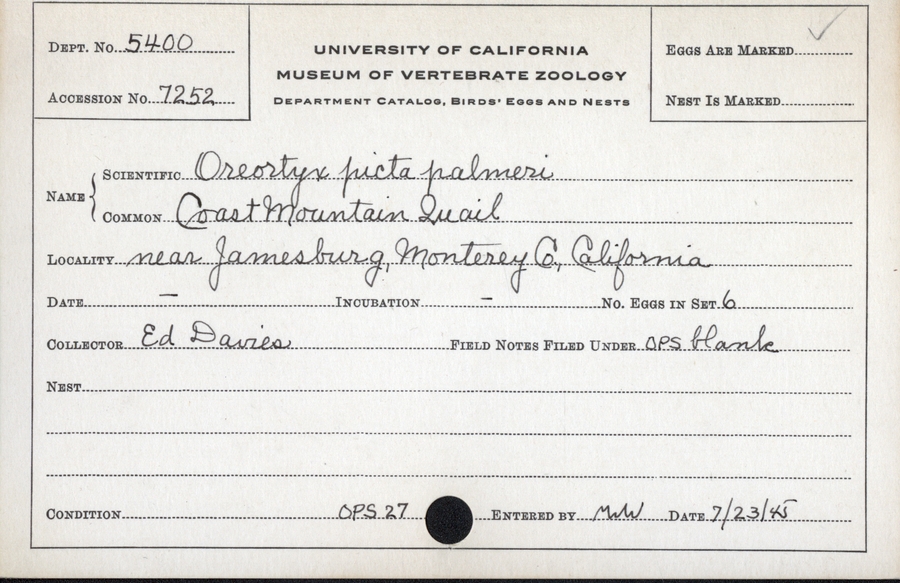 DEPT. NO. 5400
ACCESSION NO. 7252
UNIVERSITY OF CALIFORNIA
MUSEUM OF VERTEBRATE ZOOLOGY
DEPARTMENT CATALOG, BIRDS' EGGS AND NESTS
EGGS ARE MARKED ✓
NEST IS MARKED
NAME { SCIENTIFIC Oreortyx picta palmeri
COMMON Coast Mountain Quail
LOCALITY near Jamesburg, Monterey Co., California
DATE — INCUBATION - NO. EGGS IN SET 6
COLLECTOR Ed Davies FIELD NOTES FILED UNDER OPS blank
NEST
CONDITION OPS 27 ENTERED BY MWW DATE 7/23/45